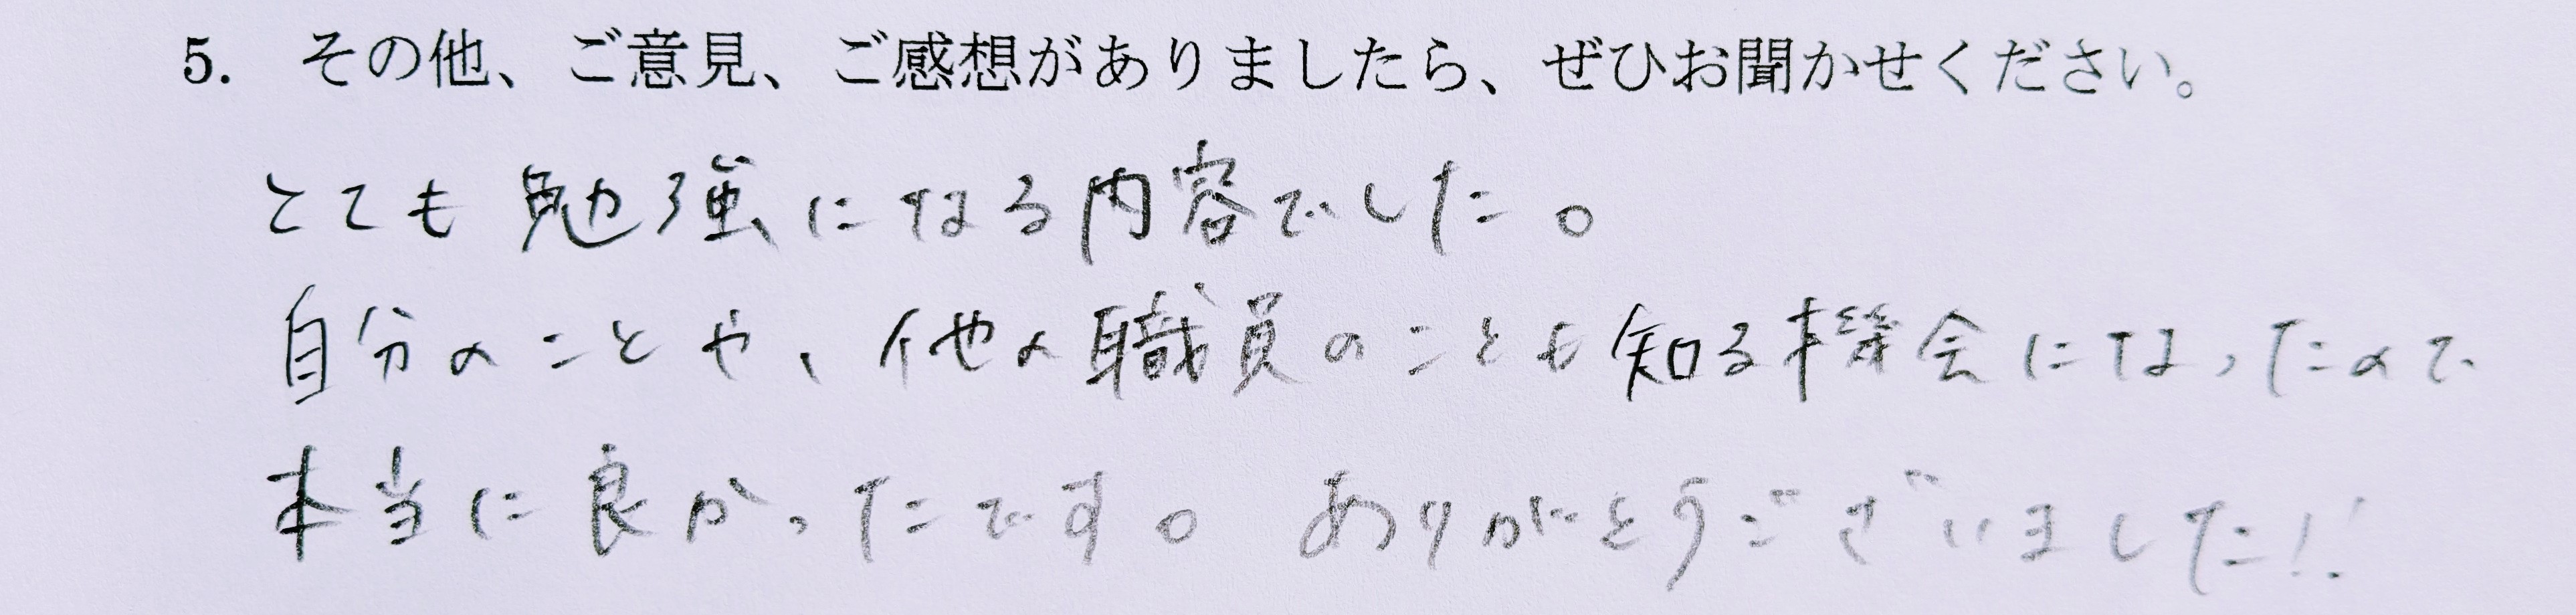 5. その他、ご意見、ご感想がありましたら、ぜひお聞かせください。
とても勉強になる内容でした。
自分のことや、他の職員のことも知る機会になったので
本当に良かったです。ありがとうございました!!